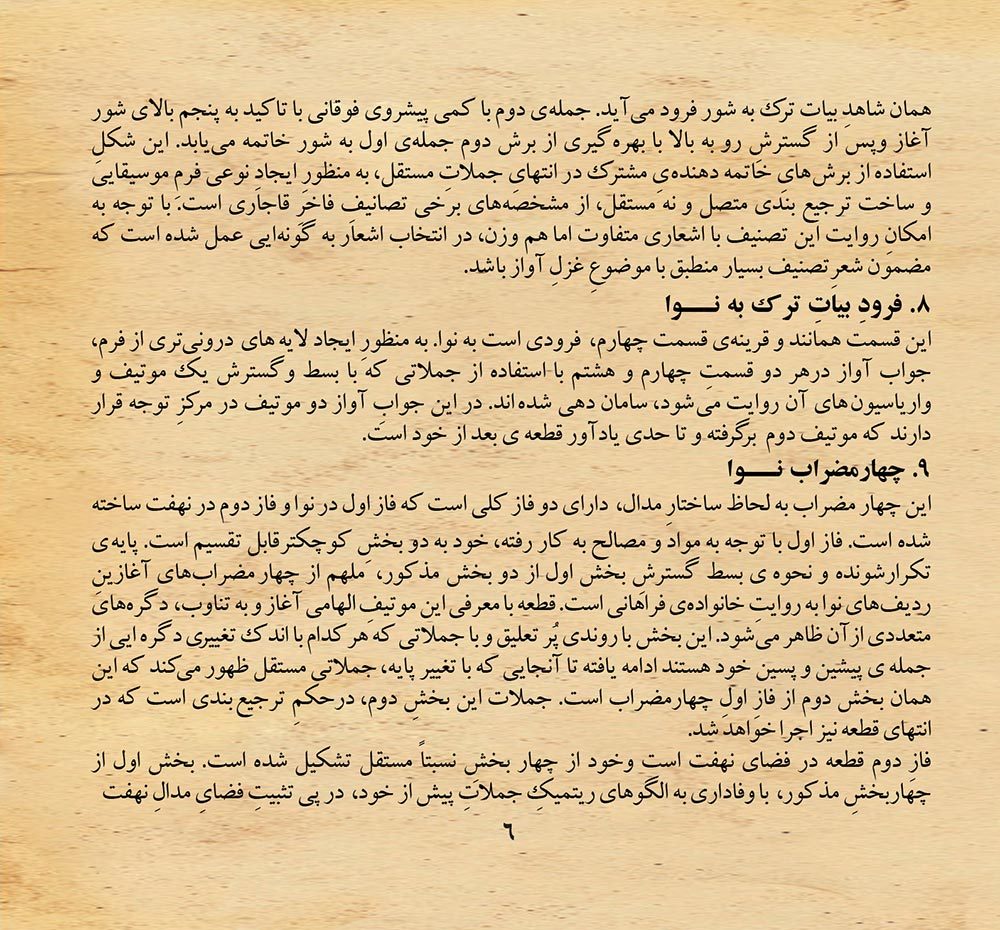 همان شاهدِ بیات ترک به شور فرود می‌آید. جمله‌ی دوم با کمی پیشروی فوقانی با تاکید به پنجم بالای شور
آغاز وپس از گسترش رو به بالا با بهره گیری از برش دوم جمله‌ی اول به شور خاتمه می‌یابد. این شکلِ
استفاده از برش‌های خاتمه دهنده‌ی مشترک در انتهای جملات مستقل، به منظورِ ایجادِ نوعی فرمِ موسیقایی
و ساخت ترجیع بندی متصل و نه مستقل، از مشخصه‌های برخی تصانیف فاخرِ قاجاری است. با توجه به
امکانِ روایت این تصنیف با اشعاری متفاوت اما هم وزن، در انتخاب اشعار به گونه‌ایی عمل شده است که
مضمون شعرِ تصنیف بسیار منطبق با موضوعِ غزلِ آواز باشد.
۸. فرودِ بیاتِ ترک به نـــوا
این قسمت همانند و قرینه‌ی قسمت چهارم، فرودی است به نوا. به منظورِ ایجاد لایه های درونی‌تری از فرم،
جواب آواز درهر دو قسمتِ چهارم و هشتم با استفاده از جملاتی که با بسط وگسترش یک موتیف و
واریاسیون‌های آن روایت می‌شود، سامان دهی شده‌اند. در این جوابِ آواز دو موتیف در مرکزِ توجه قرار
دارند که موتیف دوم برگرفته و تا حدی یادآور قطعه ی بعد از خود است.
۹. چهارمضراب نـــوا
این چهار مضراب به لحاظ ساختارِ مدال، دارای دو فاز کلی است که فاز اول در نوا و فاز دوم در نهفت ساخته
شده است. فاز اول با توجه به مواد و مصالح به کار رفته، خود به دو بخشِ کوچکترقابل تقسیم است. پایه‌ی
تکرارشونده و نحوه ی بسط گسترشِ بخش اول از دو بخش مذکور، ملهم از چهارمضراب‌های آغازینِ
ردیف‌های نوا به روایتِ خانواده‌ی فراهانی است. قطعه با معرفی این موتیفِ الهامی آغاز و به تناوب، دگره‌های
متعددی از آن ظاهر می‌شود. این بخش با روندی پُر تعلیق و با جملاتی که هر کدام با اندک تغییری دگره ایی از
جمله ی پیشین و پسین خود هستند ادامه یافته تا آنجایی که با تغییر پایه، جملاتی مستقل ظهور می‌کند که این
همان بخش دوم از فاز اول چهارمضراب است. جملات این بخشِ دوم، درحکمِ ترجیع‌بندی است که در
انتهای قطعه نیز اجرا خواهد شد.
فازِ دوم قطعه در فضای نهفت است وخود از چهار بخشِ نسبتاً مستقل تشکیل شده است. بخش اول از
چهاربخشِ مذکور، با وفاداری به الگوهای ریتمیکِ جملاتِ پیش از خود، در پی تثبیتِ فضایِ مدالِ نهفت
٦